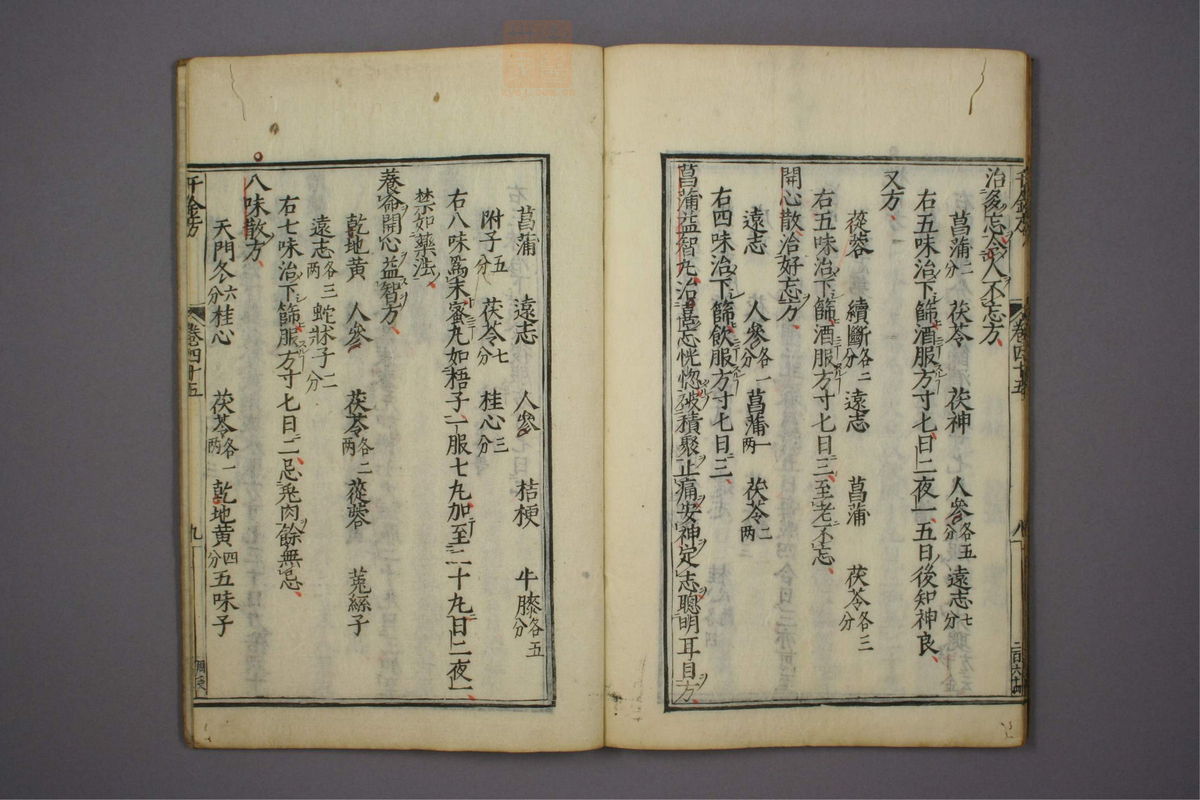 千金方 卷四十五 八 二百六十四
治多忘令人不忘方
菖蒲二分 茯苓 茯神 人參各五分 遠志七分
右五味治下篩酒服方寸匕日二夜一五日後知神良
又方
蓯蓉 續斷各二分 遠志 菖蒲 茯苓各三分
右五味治下篩酒服方寸匕日三至老不忘
開心散治好忘方
遠志 人參各一 菖蒲一兩 茯苓二兩
右四味治下篩飲服方寸匕日三
菖蒲益智丸治喜忘恍惚破積聚止痛安神定志聰明耳目方
菖蒲 遠志 人參 桔梗 牛膝各五分
附子五分 茯苓七分 桂心三分
右八味爲末蜜丸如梧子一服七丸加至二十丸日二夜一
禁如藥法
養命開心益智方
乾地黃 人參 茯苓各二兩 蓯蓉 菟絲子
遠志各三兩 蛇牀子二分
右七味治下篩服方寸匕日二忌兎肉餘無忌
八味散方
天門冬六分 桂心 茯苓各一兩 乾地黃四分 五味子
千金方 卷四十五 九